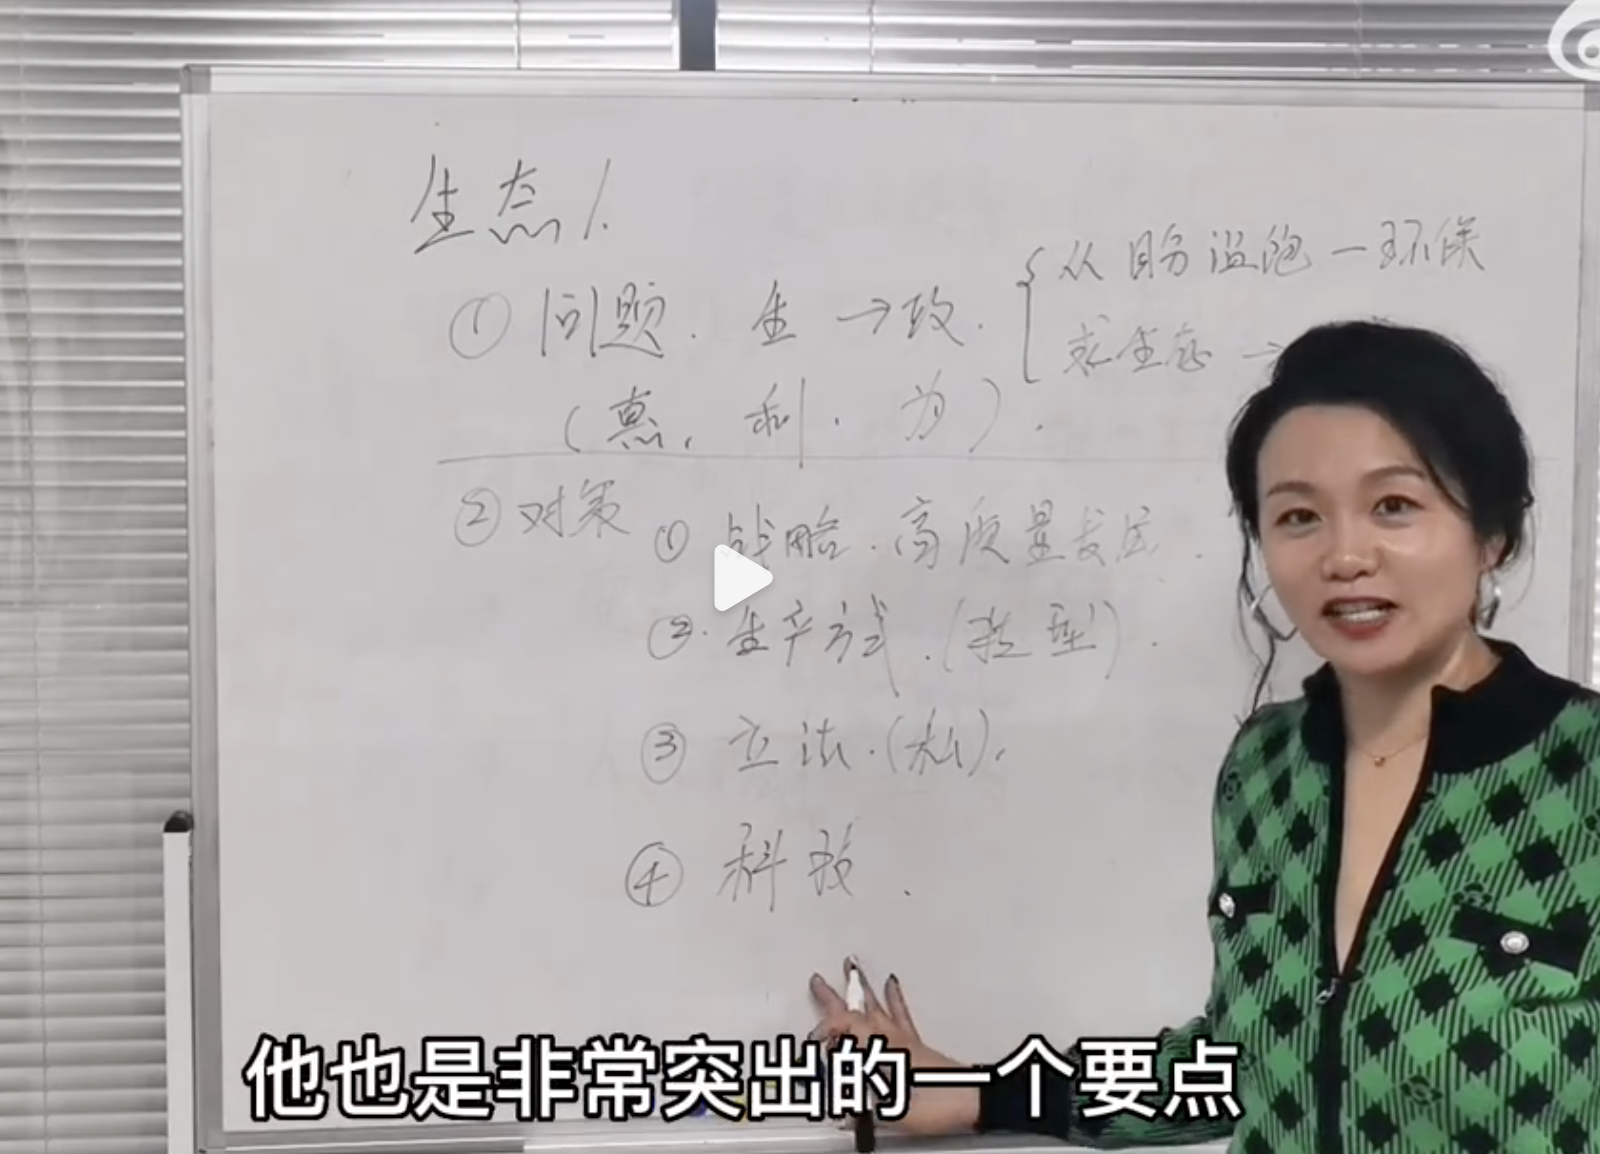 生态1.
① 问题. 生 → 政. { 从盼温饱—环保
求生态 →
(惠, 利. 为).
② 对策 ① 战略. 高质量发展.
②. 生产方式. (转型).
③ 立法. ().
④ 科技.
他也是非常突出的一个要点